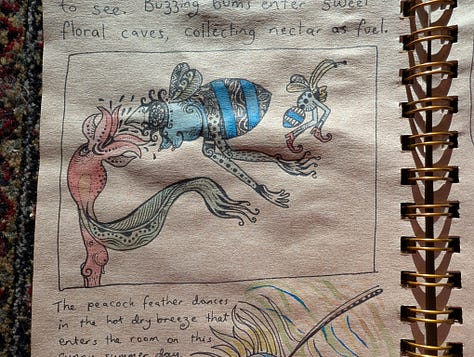 to see. Buzzing bums enter sweet
floral caves, collecting nectar as fuel.
The peacock feather dances
in the hot dry breeze that
enters the room on this
sunny summer day.